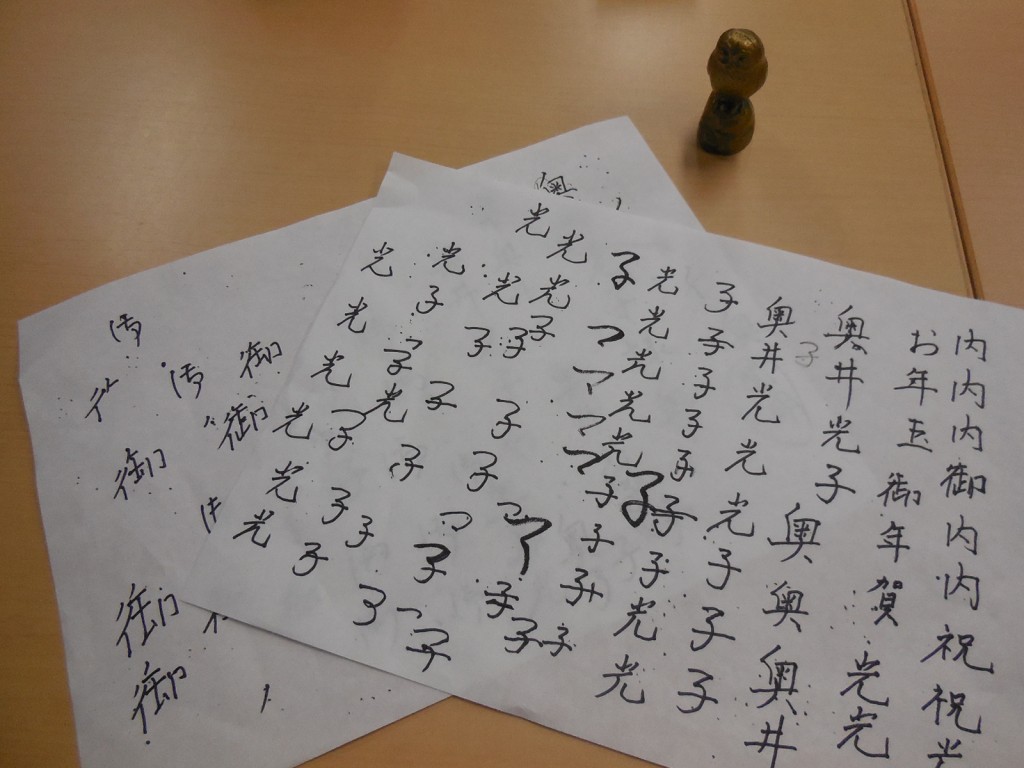 内内内御内内祝祝
お年玉御年賀光光
奥井光子奥奥奥井
奥井光光光子子子
子子子子子子子光光
光光光光光子子子子
子子
光光
光子
光子子子子
光子子光子子
子子子子子
光光光光光光
御御
御御御